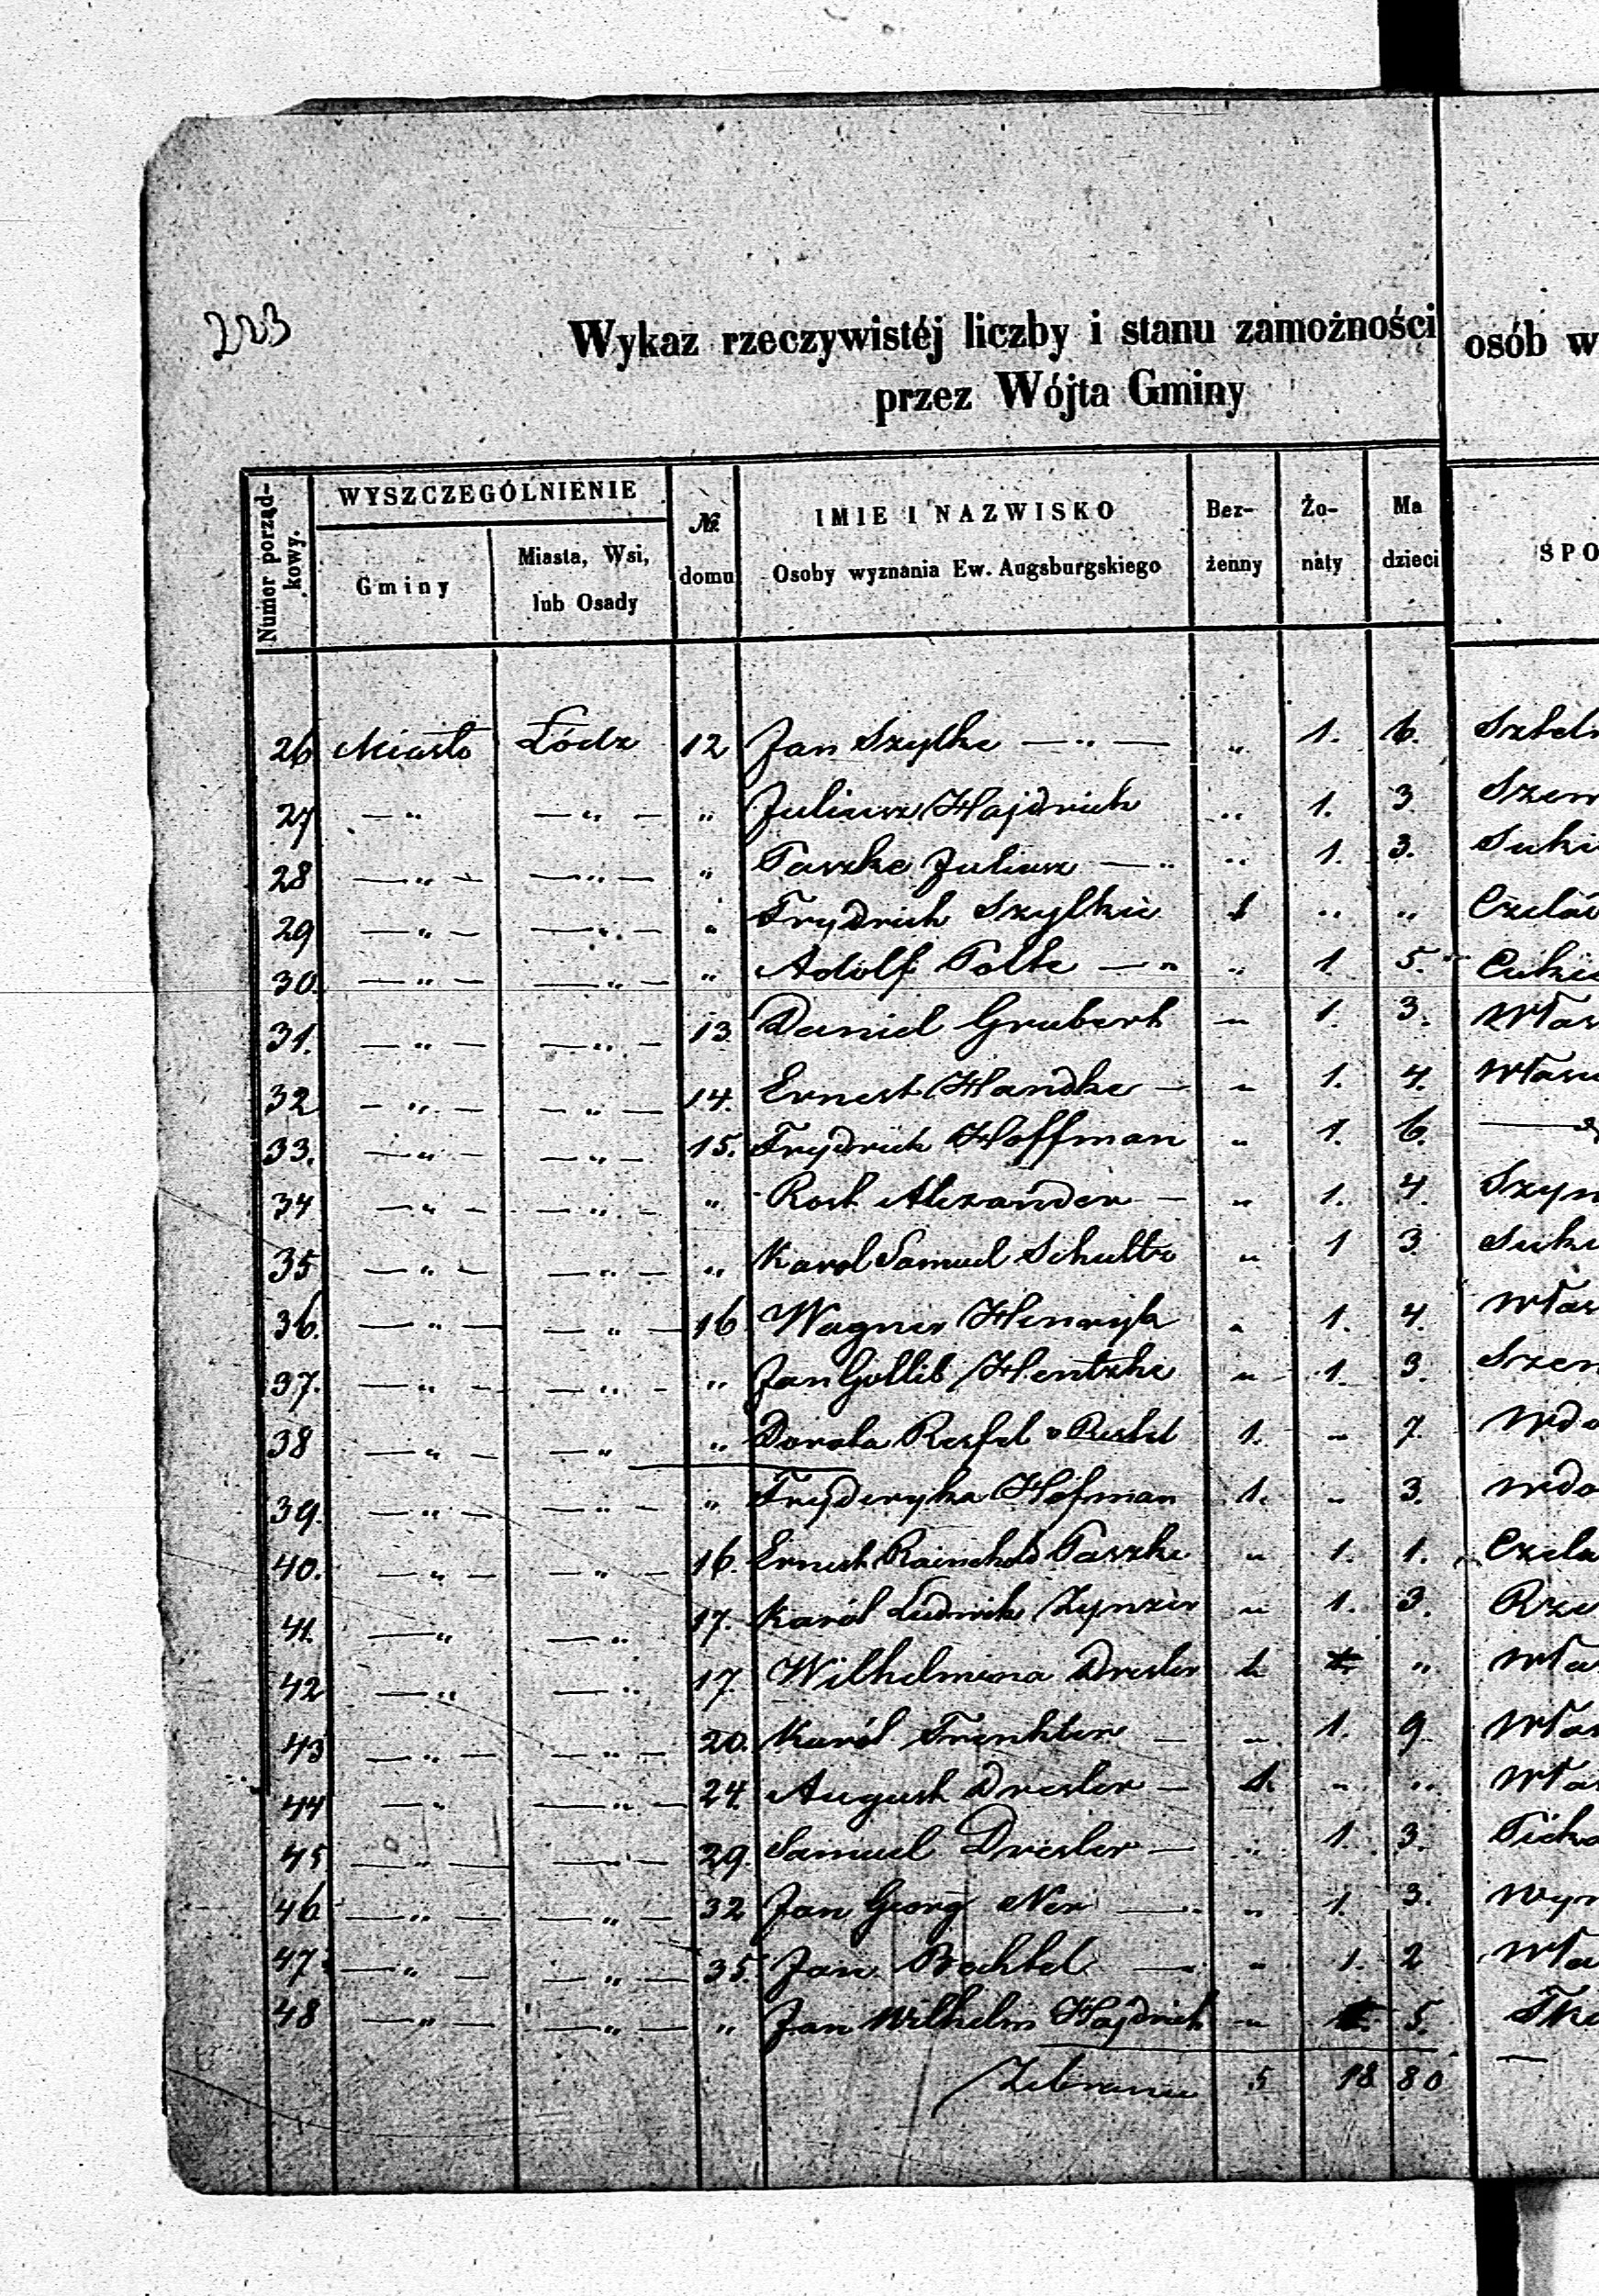 223
Wykaz rzeczywistéj liczby i stanu zamożności osób w
przez Wójta Gminy
Numer porządkowy.
WYSZCZEGÓLNIENIE
Gminy
Miasta, Wsi, lub Osady
№ domu
IMIE I NAZWISKO
Osoby wyznania Ew. Augsburgskiego
Bez-żenny
Żo-naty
Ma dzieci
SPO
26 Miasto Łódz 12 Jan Szylke — „ — „ 1. 6. Sztel
27 — „ — „ — „ Juliusz Hajdrich „ 1. 3 Szew
28 — „ — — „ — „ Paszke Juliusz — „ „ 1. 3. Suki
29 — „ — — „ — „ Frydrich Szylkie 1 „ „ Czelad
30. — „ — — „ — „ Adolf Polte — „ „ 1. 5. Cukie
31. — „ — — „ — 13. Daniel Grubert „ 1. 3. Włas
32 — „ — — „ — 14. Ernest Handke — „ 1. 4. Własc
33. — „ — — „ — 15. Frydrich Hoffman „ 1. 6. —
34 — „ — — „ — „ Rost Alexander — „ 1. 4. Szyn
35 — „ — — „ — „ Karol Samuel Schultz „ 1 3 Suki
36. — „ — — „ — 16 Wagner Henryk „ 1. 4. Włas
37. — „ — — „ — „ Jan Gottlib Hentzke „ 1. 3. Szew
38 — „ — — „ „ Dorota Resfel 1. „ 7. Wdo
39. — „ — — „ — „ Fryderyka Hofman 1. „ 3. Wdo
40. — „ — — „ — 16. Ernest Rainchold Paszke „ 1. 1. Czela
41. — „ — „ 17. Karól Ludwik Zynzer „ 1. 3. Rze
42 — „ — „ 17. Wilhelmina Dresler 1. „ Wła
43 — „ — — „ — 20. Karól Trenkler — „ 1. 9 Włas
44 — „ — „ — 24. August Dresler — 1. „ „ Włas
45 — „ — — „ — 29. Samuel Dresler — „ 1. 3.
46 — „ — — „ — 32 Jan Georg Ner — „ 1. 3. Wyr
47. — „ — — „ — 35. Jan Bechtel — „ 1. 2 Wła
48 — „ — — „ — „ Jan Wilhelm Hajdrich „ 1. 5. Tka
5 18 80 —